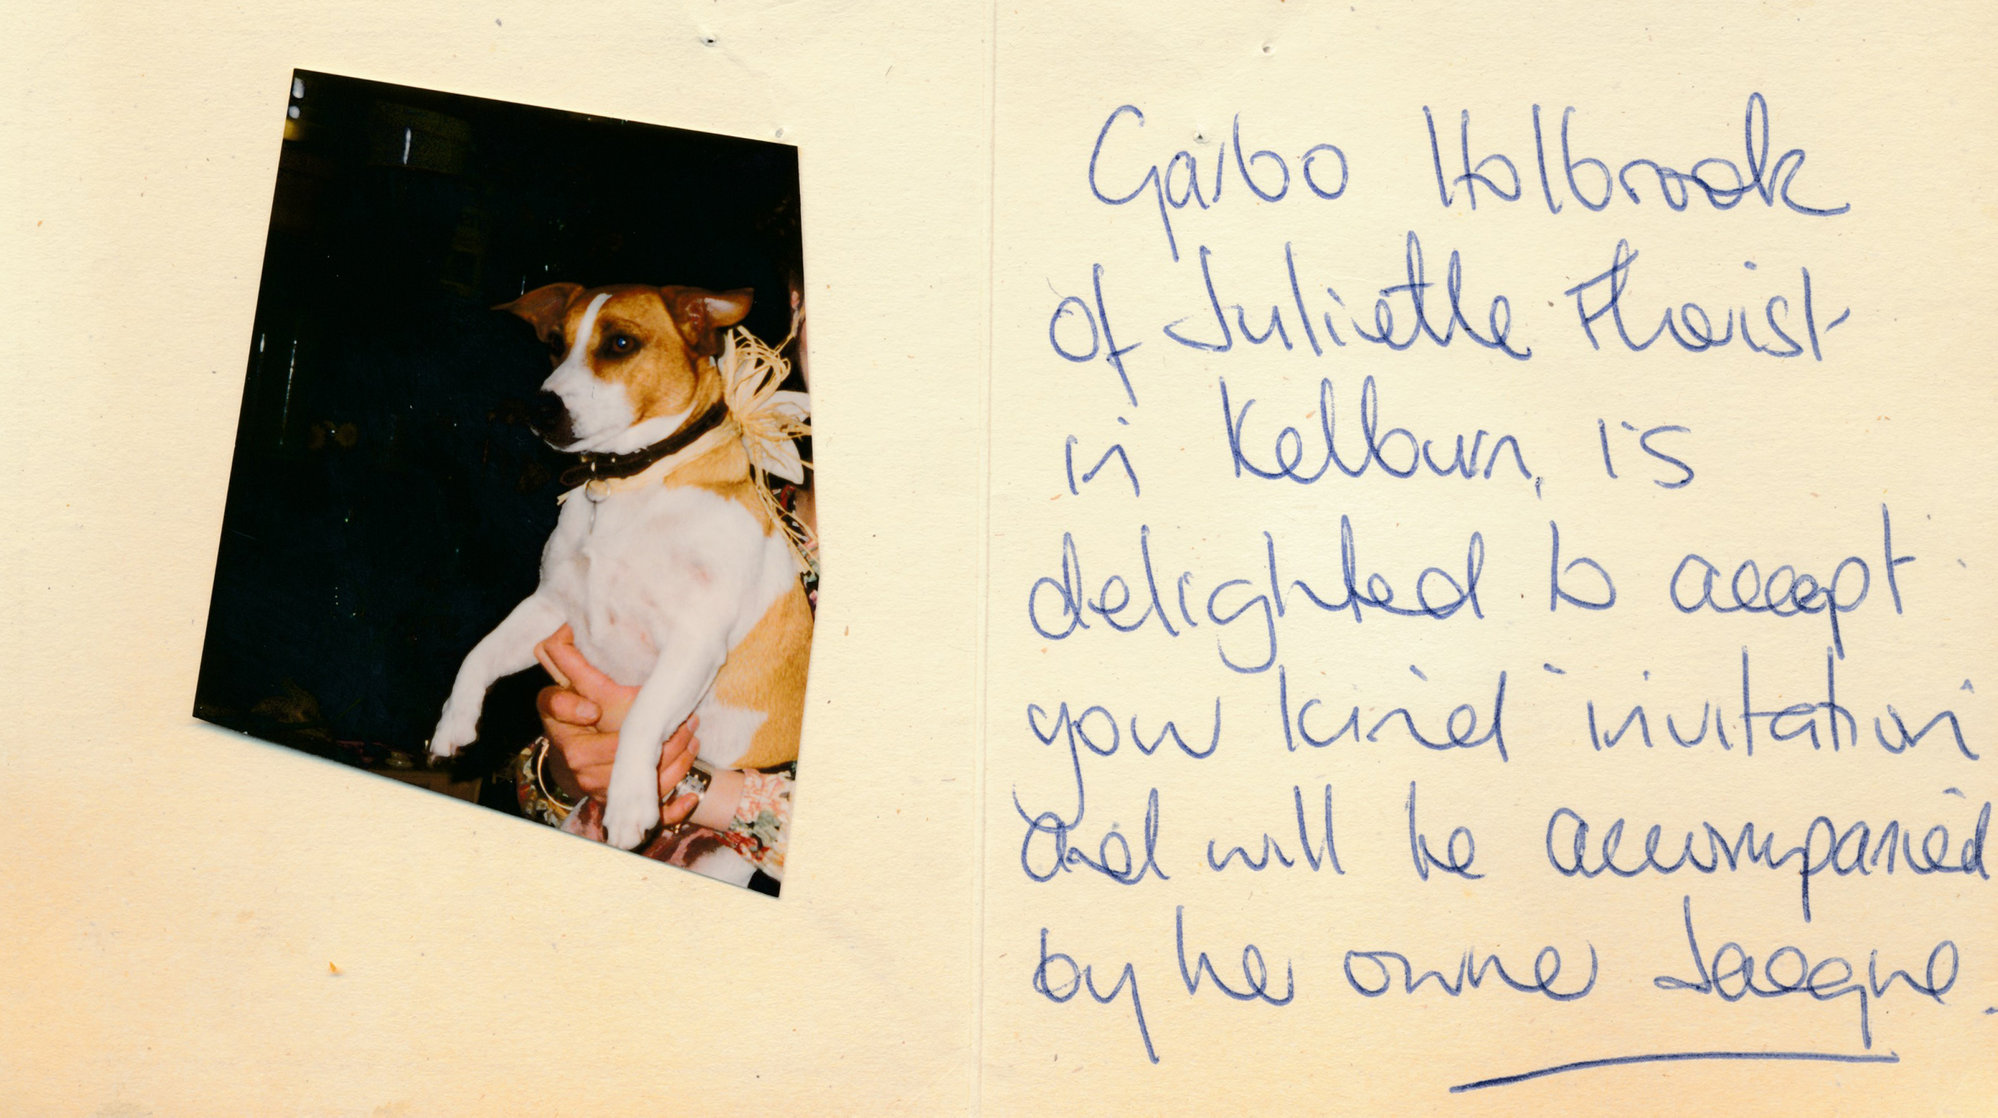 Garbo Holbrook
of Juliette Florist
in Kelburn, is
delighted to accept
your kind invitation
and will be accompanied
by her owner Jacqne.